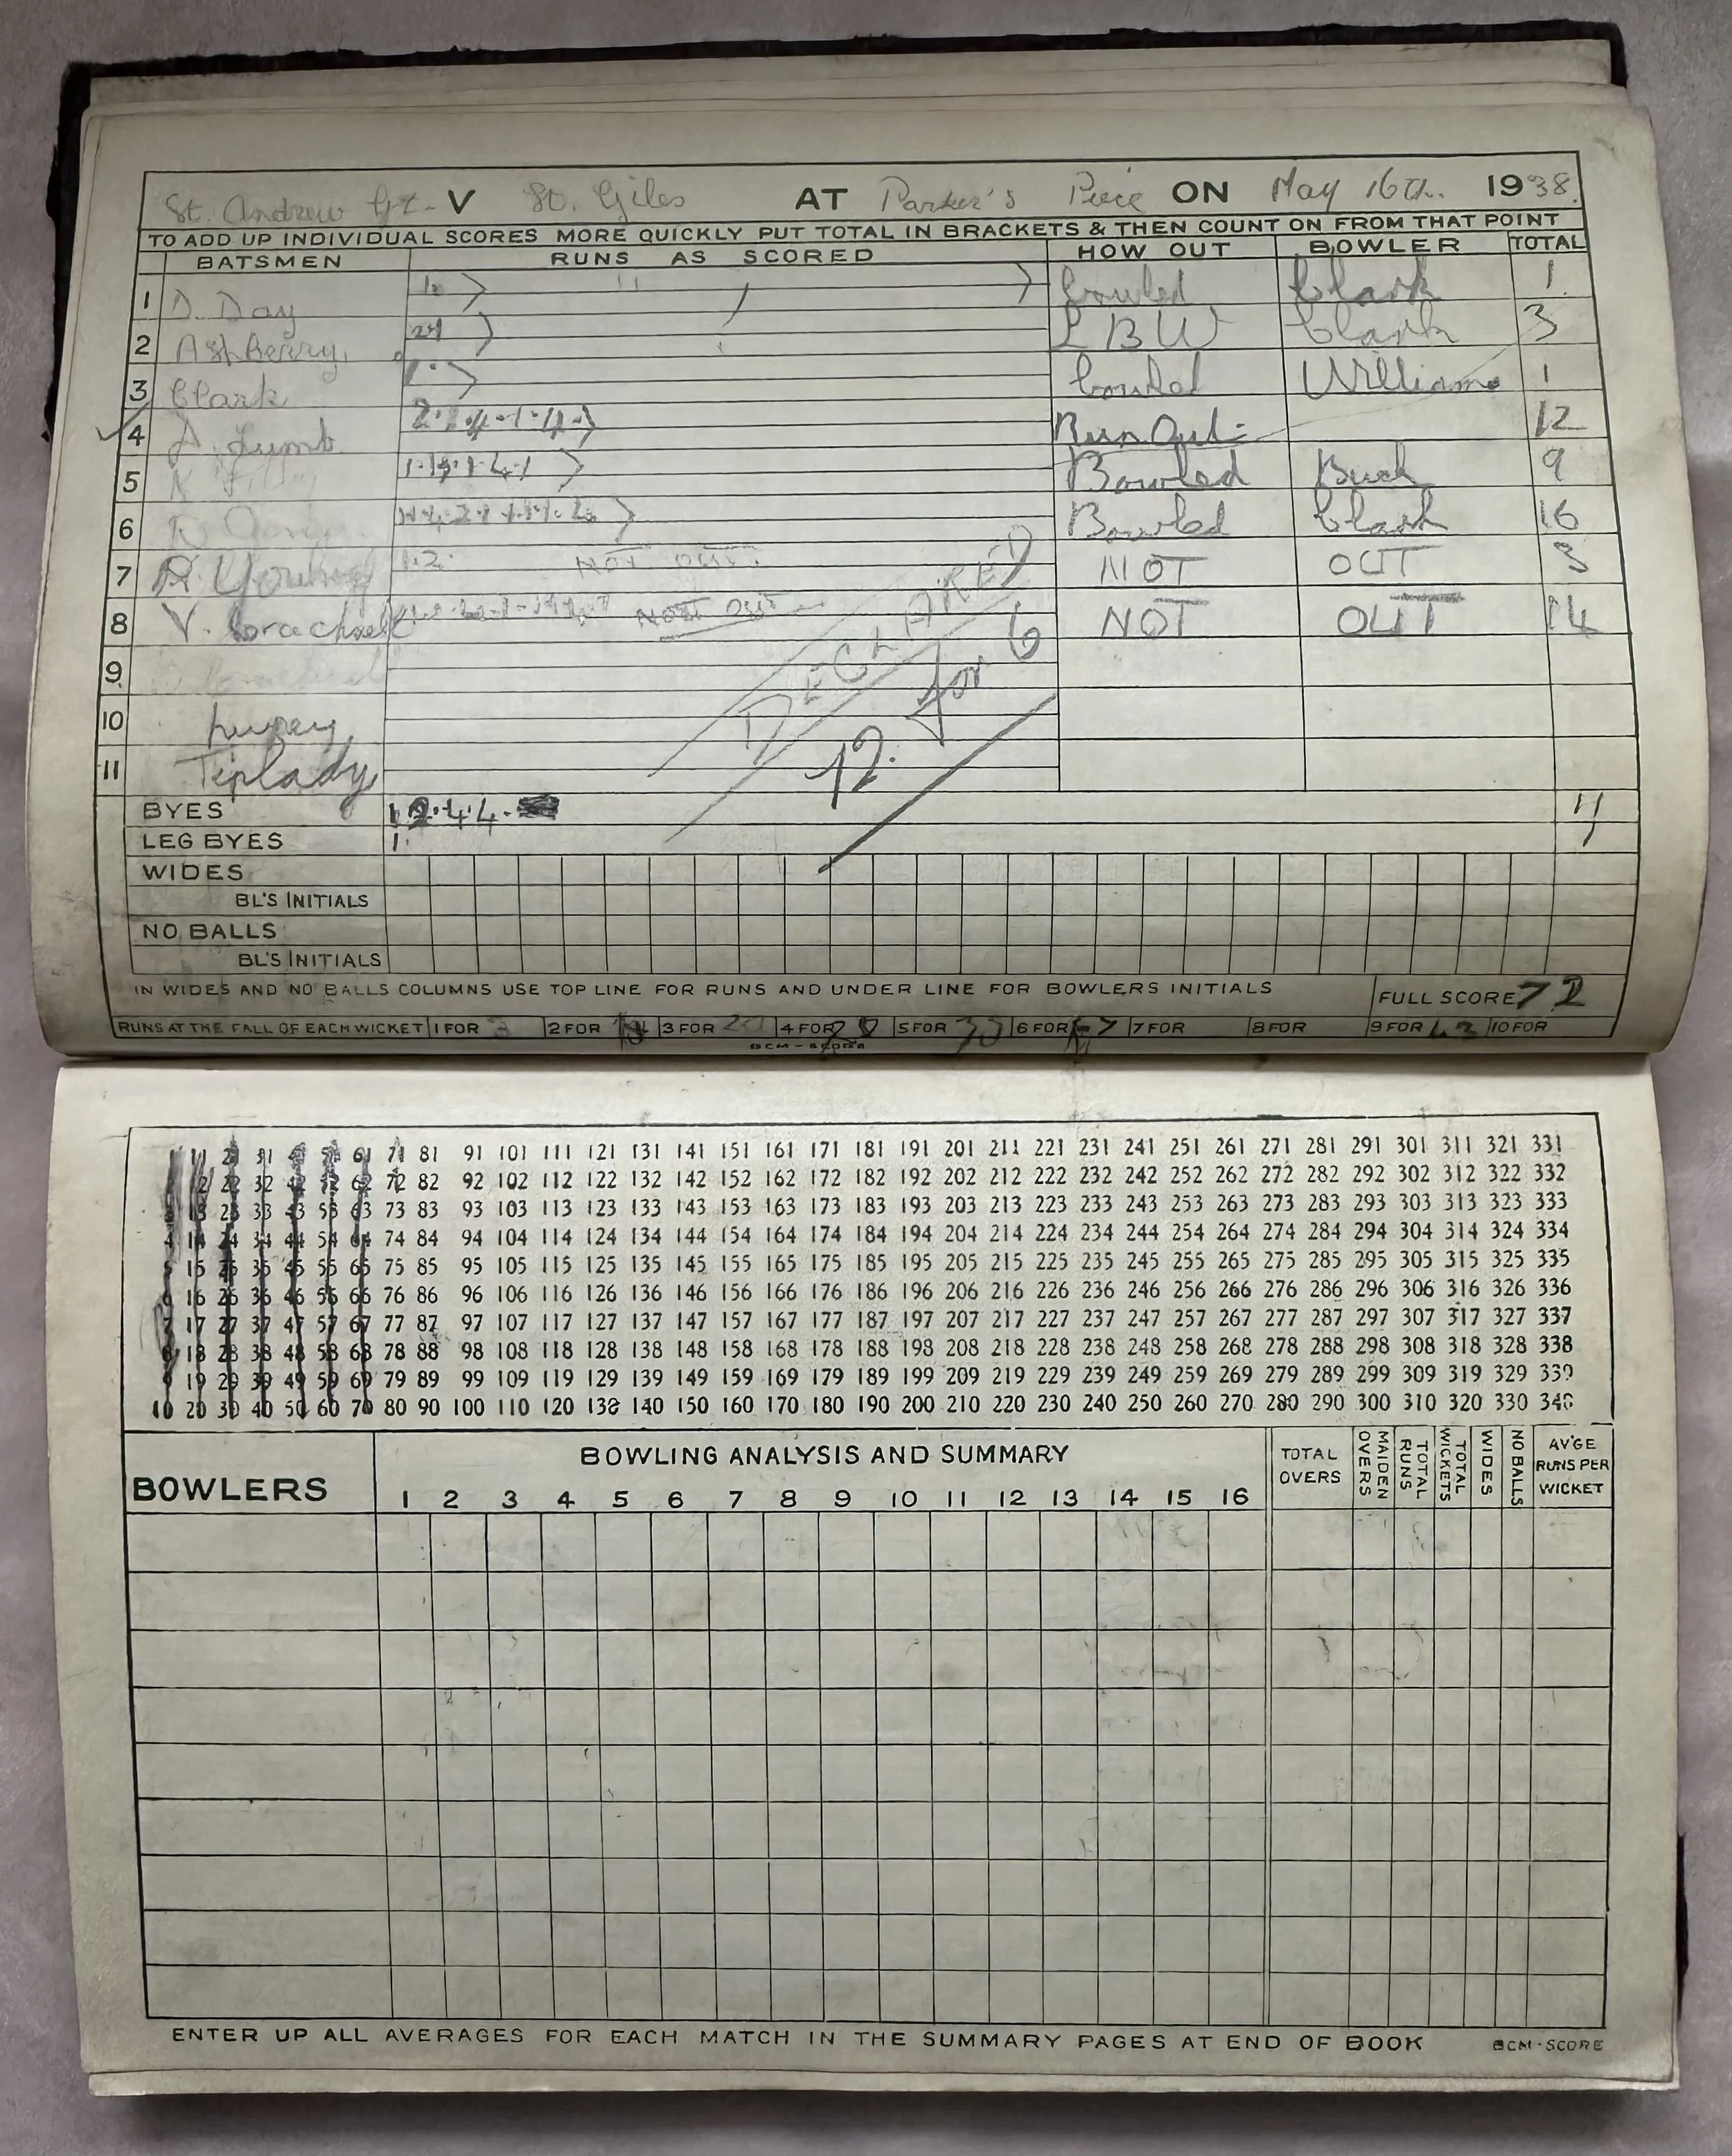 St. Andrew St. V St. Giles AT Parker's Piece ON May 16th. 1938.
TO ADD UP INDIVIDUAL SCORES MORE QUICKLY PUT TOTAL IN BRACKETS & THEN COUNT ON FROM THAT POINT
BATSMEN RUNS AS SCORED HOW OUT BOWLER TOTAL
1 D. Day bowled Clark 1
2 Ashberry. LBW Clark 3
3 Clark bowled Williams 1
4 Lumb. Run Out 12
5 Bowled Buck 9
6 Bowled Clark 16
7 R. Young 1.2. NOT OUT. NOT OUT 3
8 V. NOT OUT NOT OUT 14
9
10
11 Tiplady
DECLARED
72. for 6
BYES 1.2.4.4.
LEG BYES 1.
WIDES
BL'S INITIALS
NO BALLS
BL'S INITIALS
IN WIDES AND NO BALLS COLUMNS USE TOP LINE FOR RUNS AND UNDER LINE FOR BOWLERS INITIALS FULL SCORE 72
RUNS AT THE FALL OF EACH WICKET 1 FOR 3 2 FOR 3 FOR 20 4 FOR 28 5 FOR 6 FOR 7 FOR 8 FOR 9 FOR 10 FOR
BCM-SCORE
1 11 21 31 41 51 61 71 81 91 101 111 121 131 141 151 161 171 181 191 201 211 221 231 241 251 261 271 281 291 301 311 321 331
12 22 32 42 52 62 72 82 92 102 112 122 132 142 152 162 172 182 192 202 212 222 232 242 252 262 272 282 292 302 312 322 332
3 13 23 33 43 53 63 73 83 93 103 113 123 133 143 153 163 173 183 193 203 213 223 233 243 253 263 273 283 293 303 313 323 333
4 14 24 34 44 54 64 74 84 94 104 114 124 134 144 154 164 174 184 194 204 214 224 234 244 254 264 274 284 294 304 314 324 334
5 15 25 35 45 55 65 75 85 95 105 115 125 135 145 155 165 175 185 195 205 215 225 235 245 255 265 275 285 295 305 315 325 335
6 16 26 36 46 56 66 76 86 96 106 116 126 136 146 156 166 176 186 196 206 216 226 236 246 256 266 276 286 296 306 316 326 336
7 17 27 37 47 57 67 77 87 97 107 117 127 137 147 157 167 177 187 197 207 217 227 237 247 257 267 277 287 297 307 317 327 337
8 18 28 38 48 58 68 78 88 98 108 118 128 138 148 158 168 178 188 198 208 218 228 238 248 258 268 278 288 298 308 318 328 338
9 19 29 39 49 59 69 79 89 99 109 119 129 139 149 159 169 179 189 199 209 219 229 239 249 259 269 279 289 299 309 319 329 339
10 20 30 40 50 60 70 80 90 100 110 120 130 140 150 160 170 180 190 200 210 220 230 240 250 260 270 280 290 300 310 320 330 340
BOWLERS BOWLING ANALYSIS AND SUMMARY TOTAL OVERS MAIDEN OVERS TOTAL RUNS TOTAL WICKETS WIDES NO BALLS AV'GE RUNS PER WICKET
1 2 3 4 5 6 7 8 9 10 11 12 13 14 15 16
ENTER UP ALL AVERAGES FOR EACH MATCH IN THE SUMMARY PAGES AT END OF BOOK BCM·SCORE